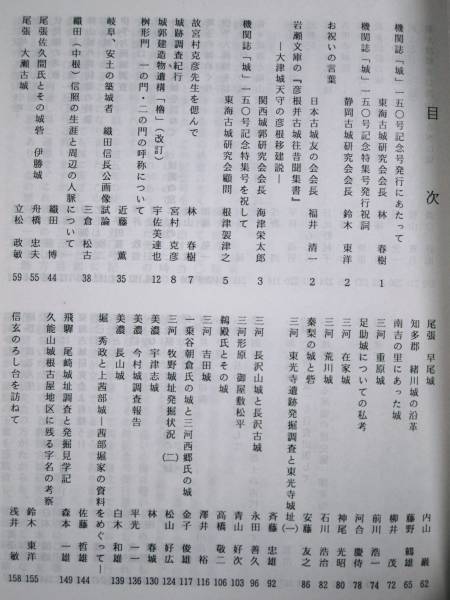 目次
機関誌「城」一五〇号記念号発行にあたって
東海古城研究会会長 林 春樹 1
機関誌「城」一五〇号記念特集号発行祝詞
静岡古城研究会会長 鈴木 東洋 2
お祝いの言葉
日本古城友の会会長 福井 清一 2
岩瀬文庫の『彦根并古城往昔聞集書』
―大津城天守の彦根移建説―
関西城郭研究会会長 海津栄太郎 3
機関誌「城」一五〇号記念特集号を祝して
東海古城研究会顧問 根津袈津之 5
故宮村克彦先生を偲んで 林 春樹 7
城跡調査紀行 宮村 克彦 8
城郭建造物遺構「櫓」(改訂) 宇佐美達也 12
桝形門 一の門・二の門の呼称について
近藤 薫 35
岐阜、安土の築城者 織田信長公画像試論
三倉 松古 38
織田(中根)信照の生涯と周辺の人脈について
織田 博 44
尾張佐久間氏とその城砦 伊勝城 舟橋 忠夫 55
尾張 大瀬古城 立松 政敏 59
尾張 早尾城 内山 巌 62
知多郡 緒川城の沿革 藤野 鶴雄 65
南吉の里にあった城 柳井 茂 72
三河 重原城 前川 浩一 74
足助城についての私考 河合 慶侍 78
三河 在家城 神尾 光昭 80
三河 荒川城 石川 浩治 82
秦梨の城と砦 安藤 友之 86
三河 東光寺遺跡発掘調査と東光寺城址(一)
斉藤 忠雄 92
三河 長沢山城と長沢古城 永田 善久 96
三河形原 御屋敷松平 青山 好次 103
鵜殿氏とその城 高橋 敬二 106
三河 吉田城 澤井 裕 116
一乗谷朝倉氏の城と三河西郷氏の城 金子 俊雄 117
三河 牧野城址発掘状況(二) 松山 好広 124
美濃 宇津志城 林 春城 130
美濃 今村城調査報告 平光 一一 136
美濃 長山城 白木 和雄 139
堀 秀政と上茜部城―茜部堀家の資料をめぐって―
佐藤 哲雄 144
飛騨 尾崎城址調査と発掘見学記 森本 一雄 149
久能山城根古屋地区に残る字名の考察
鈴木 東洋 155
信玄のろし台を訪ねて 浅井 敏 158